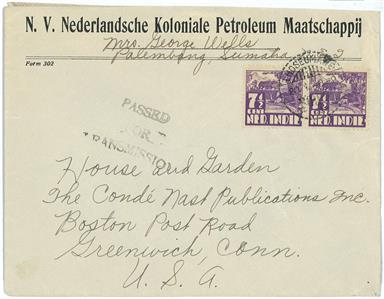 N. V. Nederlandsche Koloniale Petroleum Maatschappij
Mrs. George Wells
Palembang Sumatra
Form 302
PASSED
FOR
TRANSMISSION
7½
CENT
NED. INDIE
7½
CENT
NED. INDIE
House and Garden
The Condé Nast Publications Inc.
Boston Post Road
Greenwich, Conn.
U. S. A.